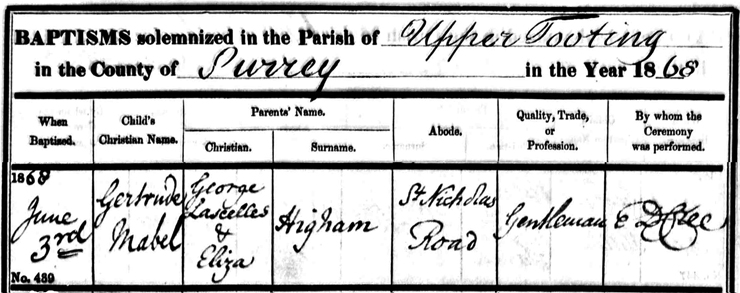 BAPTISMS solemnized in the Parish of Upper Tooting
in the County of Surrey in the Year 1868
When Baptised.
Child's Christian Name.
Parents' Name.
Christian.
Surname.
Abode.
Quality, Trade, or Profession.
By whom the Ceremony was performed.
1868
June
3rd
No. 489
Gertrude
Mabel
George
Lascelles
&
Eliza
Higham
St Nicholas
Road
Gentleman
E